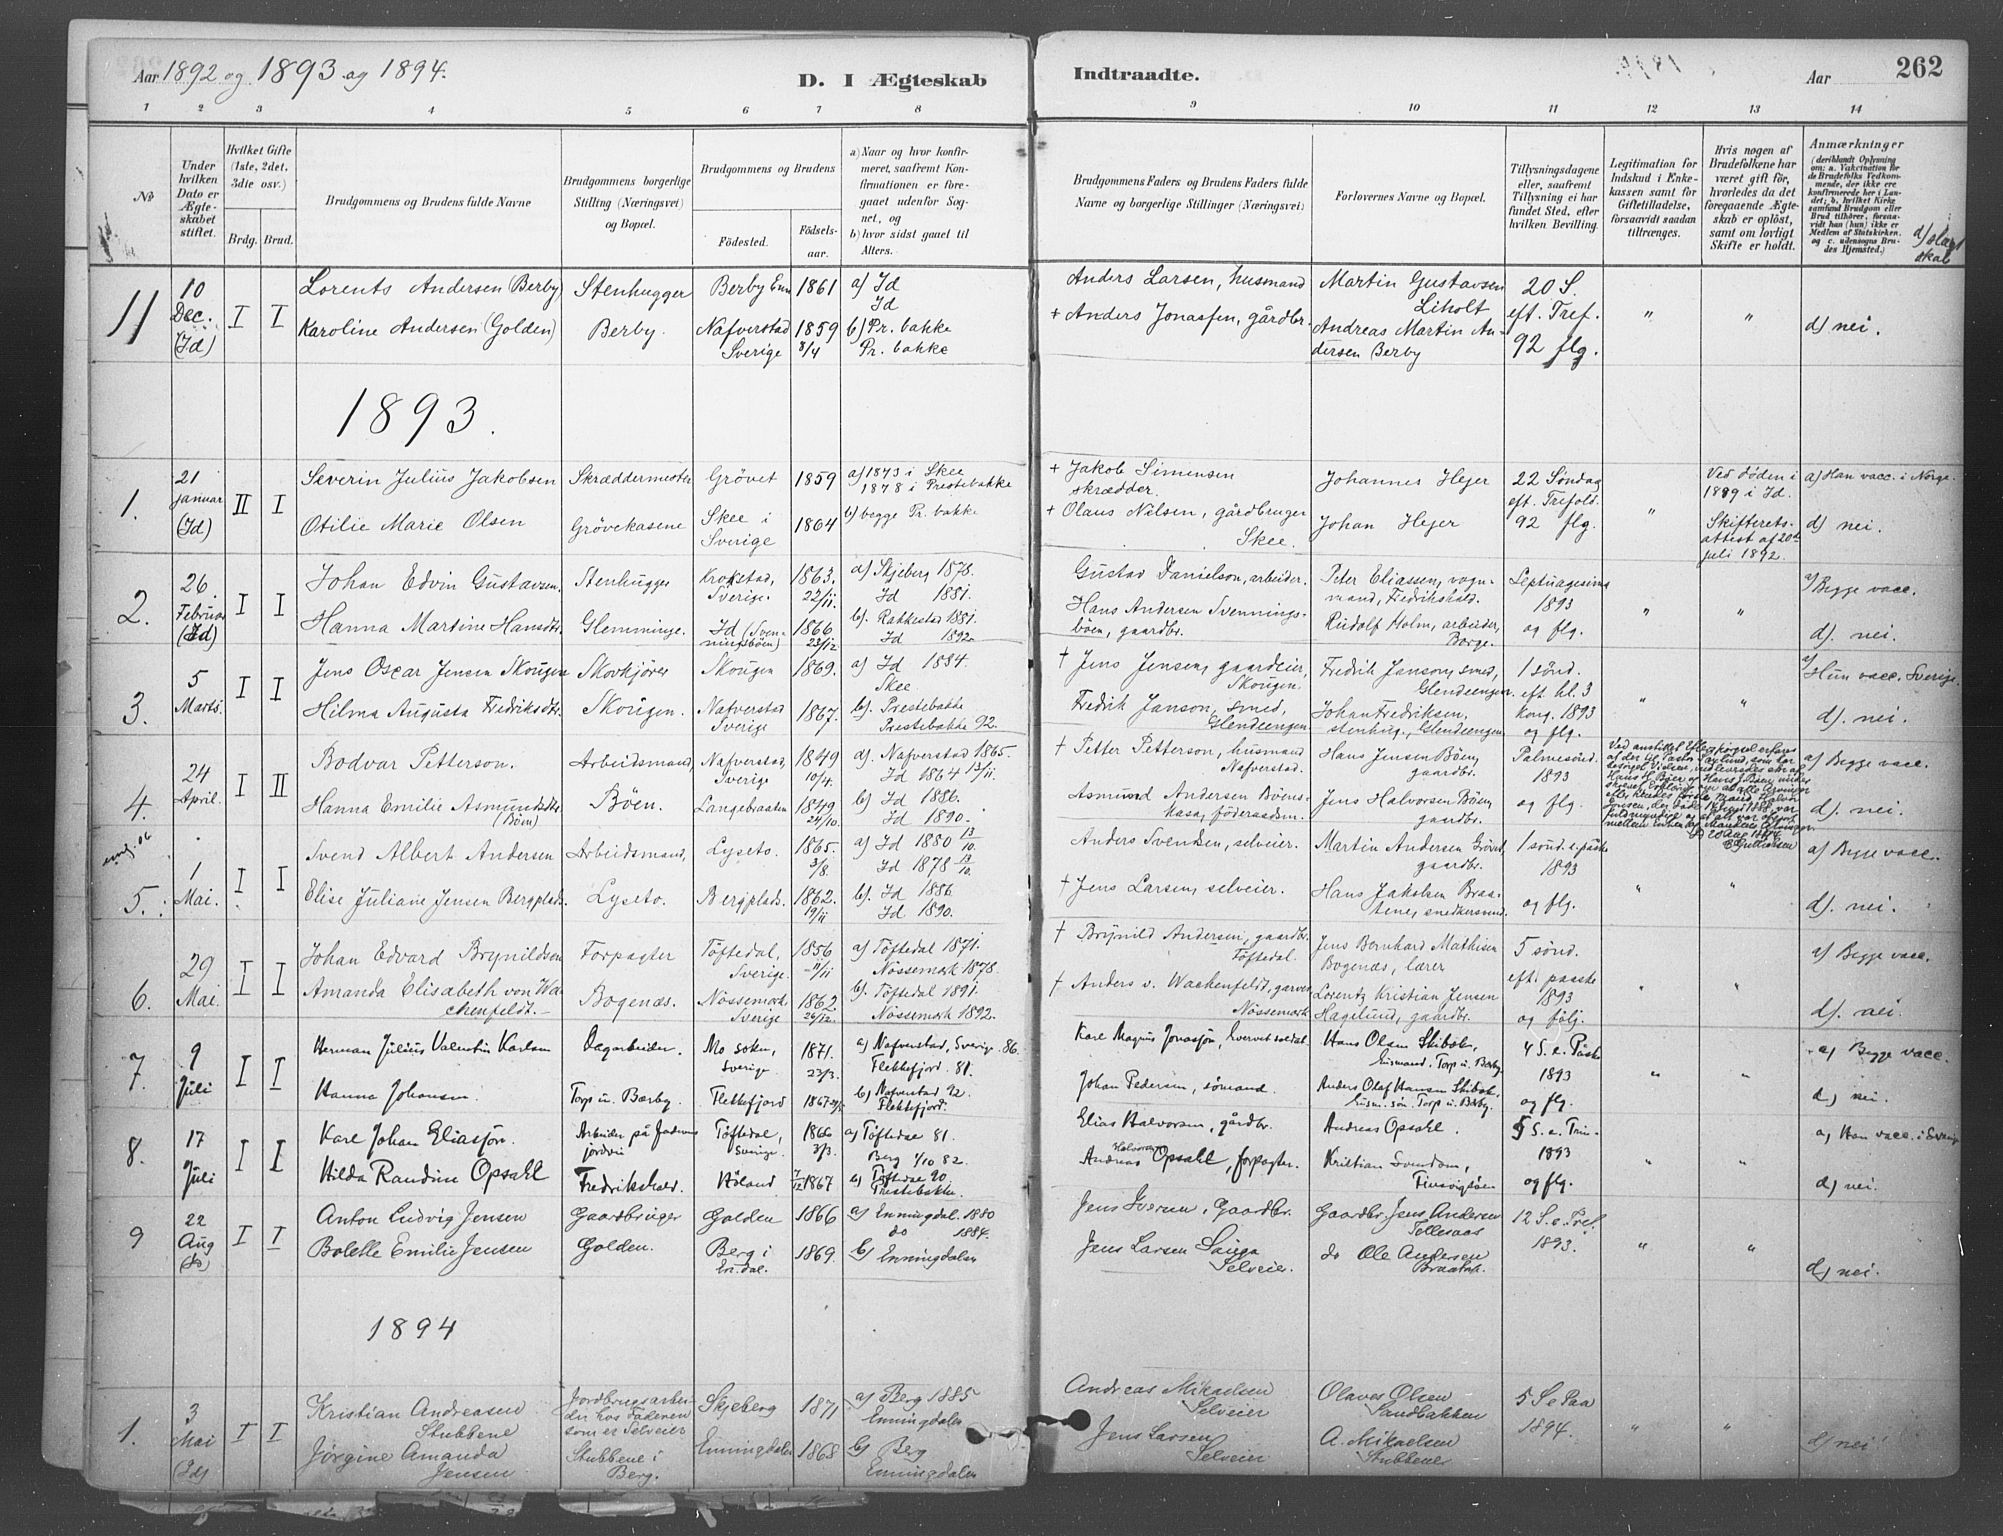 Aar 1892 og 1893 og 1894.
D. I Ægteskab Indtraadte.
Aar
262
1 2 3 4 5 6 7 8 9 10 11 12 13 14
No
Under hvilken Dato er Ægteskabet stiftet.
Hvilket Gifte (1ste, 2det, 3die osv.)
Brdg. Brud.
Brudgommens og Brudens fulde Navne
Brudgommens borgerlige Stilling (Næringsvei) og Bopæl.
Brudgommens og Brudens
Födested.
Födselsaar.
a) Naar og hvor konfirmeret, saafremt Konfirmationen er foregaaet udenfor Sognet, og
b) hvor sidst gaaet til Alters.
Brudgommens Faders og Brudens Faders fulde Navne og borgerlige Stillinger (Næringsvei)
Forlovernes Navne og Bopæl.
Tillysningsdagene eller, saafremt Tillysning ei har fundet Sted, efter hvilken Bevilling.
Legitimation for Indskud i Enkekassen samt for Giftetilladelse, forsaavidt saadan tiltrænges.
Hvis nogen af Brudefolkene har været gift för, hvorledes da det foregaaende Ægteskab er oplöst, samt om lovligt Skifte er holdt.
Anmærkninger
d) slægtskab
11
10 Dec. (Id)
I I
Lorents Andersen (Berby) Stenhugger Berby Enn 1861 a) Id
Id
Karoline Andersen (Golden) Berby. Nafverstad Sverige 1859 8/4 b) Pr. bakke
Pr. bakke
Anders Larsen, husmand Martin Gustavsen Liholt
+ Anders Jonassen, gårdbr. Andreas Martin Andersen Berby
20 S. eft. Tref. 92 flg.
" " d) nei.
1893.
1.
21 januar (Id)
II I
Severin Julius Jakobsen Skræddermester Grövet 1859 a) 1843 i Skee
1878 i Prestebakke
Otilie Marie Olsen Grövekasene Skee i Sverige 1864 b) begge Pr. bakke
+ Jakob Simensen skrædder. Johannes Hejer
+ Olaus Nilsen, gårdbruger Skee. Johan Hejer
22 Söndag eft. Trefold. 92 flg.
"
Ved döden i 1889 i Id. Skifterets-attest af 20de juli 1892.
a) Han vacc. i Norge.
d) nei.
2.
26. Februar (Id)
I I
Johan Edvin Gustavsen. Stenhugge Krokstad, Sverige. 1863. 22/11. a) Skjeberg 1878.
Id 1881.
Hanna Martine Hansdtr. Glemminge. Id (Svenningsböen) 1866. 23/12. b). Rakkestad 1881.
Id 1892.
Gustav Danielson, arbeider. Peter Eliassen, vognmand, Fredrikshald.
Hans Andersen Svenningsböen, gaardbr. Rudolf Holm, arbeider, Borge.
Septuagesima 1893 og flg.
" "
a) Begge vacc.
d). nei.
3.
5 Marts.
I I
Jens Oscar Jensen Skougen Skovkjörer Skougen 1869. a) Id 1884.
Skee
Hilma Augusta Fredriksdtr. Skougen. Nafverstad Sverige 1867. b). Prestebakke
Prestebakke 92.
† Jens Jensen, gaardeier, Skougen. Fredrik Janson, smed, Glendeengen.
Fredrik Janson, smed, Glendeengen Johan Fredriksen, stenhug., Glendeengen
1 sönd. eft. hl. 3 kong. 1893 og flg.
" "
a) Hun vacc. Sverige.
d). nei.
4.
24 April.
I II
Bodvar Petterson. Arbeidsmand, Nafverstad, Sverige 1849 10/4. a). Nafverstad 1865.
Id 1864 13/11.
Hanna Emilie Asmundsdtr. (Böen) Böen. Langebaaten 1849. 24/10. b) Id 1886.
Id 1890.
† Petter Petterson, husmand Nafverstad. Hans Jensen Böen, gaardbr.
Asmund Andersen Böens-Masa, föderaadsm. Jens Halvorsen Böen, gaardbr.
Palmesönd. 1893 og flg.
a) Begge vacc.
d). nei.
5.
1 Mai.
I I
Svend Albert Andersen Arbeidsmand, Lyseto. 1865. 3/8. a) Id 1880 13/10.
Id 1878 13/10.
Elise Juliane Jensen Bergplads. Lyseto. Bergplads. 1862. 19/11 b). Id 1886
Id 1890.
Anders Svendsen, selveier. Martin Andersen Grövet, gaardbr.
† Jens Larsen, selveier. Hans Jakobsen Braatene, snedkersvend.
1 sönd. e. paaske 1893 og flg.
" "
a) Begge vacc.
d). nei.
6.
29 Mai.
I I
Johan Edvard Brynildson Forpagter Töftedal, Sverige. 1856 11/11 a) Töftedal 1871.
Nössemark 1878.
Amanda Elisabeth von Wachenfeldt. Bogenæs. Nössemark Sverige 1862. 26/12. b). Töftedal 1891.
Nössemark 1892.
† Brynild Andersen, gaardbr. Töftedal. Jens Bernhard Mathisen Bogenæs, lærer
† Anders v. Wachenfeldt, garver Nössemark Lorentz Kristian Jensen Hagelund, gaardbr.
5 sönd. eft. paaske 1893 og följ.
" "
a) Begge vacc.
d). nei.
7.
9 Juli
I I
Herman Julius Valentin Karlsen Dagarbeider. Mo sokn, Sverige 1871. 22/3. a) Nafverstad, Sverige 86.
Flekkefjord. 81.
Hanna Johansen Torp u. Bærby. Flekkefjord 1867 b) Nafverstad 92.
Flekkefjord.
Karl Magnus Jonasson, hvervet soldat. Hans Olsen Skibok, husmand, Torp u. Berby
Johan Pedersen, sömand. Anders Olaf Hansen Skibok, husm. sön Torp u. Bærby.
4 S. e. Påske 1893 og flg.
" "
a) Begge vacc.
d) nei.
8.
17 Juli
I I
Karl Johan Eliasson. Arbeider på Töftedal, Sverige. 1866 3/3. a) Töftedal 81.
Berg 1/10 82.
Hilda Randine Opsahl Fredrikshald. Höland 7/12 1867 b) Töftedal 90.
Prestebakke.
Elias Halvorsen, gårdbr. Andreas Opsahl.
Andreas Halvorsen Opsahl, forpagter. Kristian Svendsen,
5 S. e. Trin. 1893 og flg.
" "
a) Han vacc. i Sverige
d) nei.
9
22 Aug (Id)
I I
Anton Ludvig Jensen Gaardbruger Golden 1866 a) Enningdal. 1880
do 1884.
Bolette Emilie Jensen Golden. Berg i En.dal. 1869. b) Enningdalen
Jens Iversen, Gaardbr. Gaardbr. Jens Andersen Tollesaas
Jens Larsen Selveier. do Ole Andersen
12 S. e. Tref. 1893.
" "
d) nei.
1894
1.
3 Mai (Id)
I I
Kristian Andreasen Stubbene Jordbrugsarbeider hos Faderen som er Selveier Skjeberg 1871 a) Berg 1885
Enningdalen
Jørgine Amanda Jensen Stubbene i Berg. Enningdalen 1868 b) Berg
Enningdalen
Andreas Mikaelsen Selveier Olaves Olsen Sandbakken
Jens Larsen Selveier A. Mikaelsen Stubbene
5 S e Paa 1894.
" "
d) nei